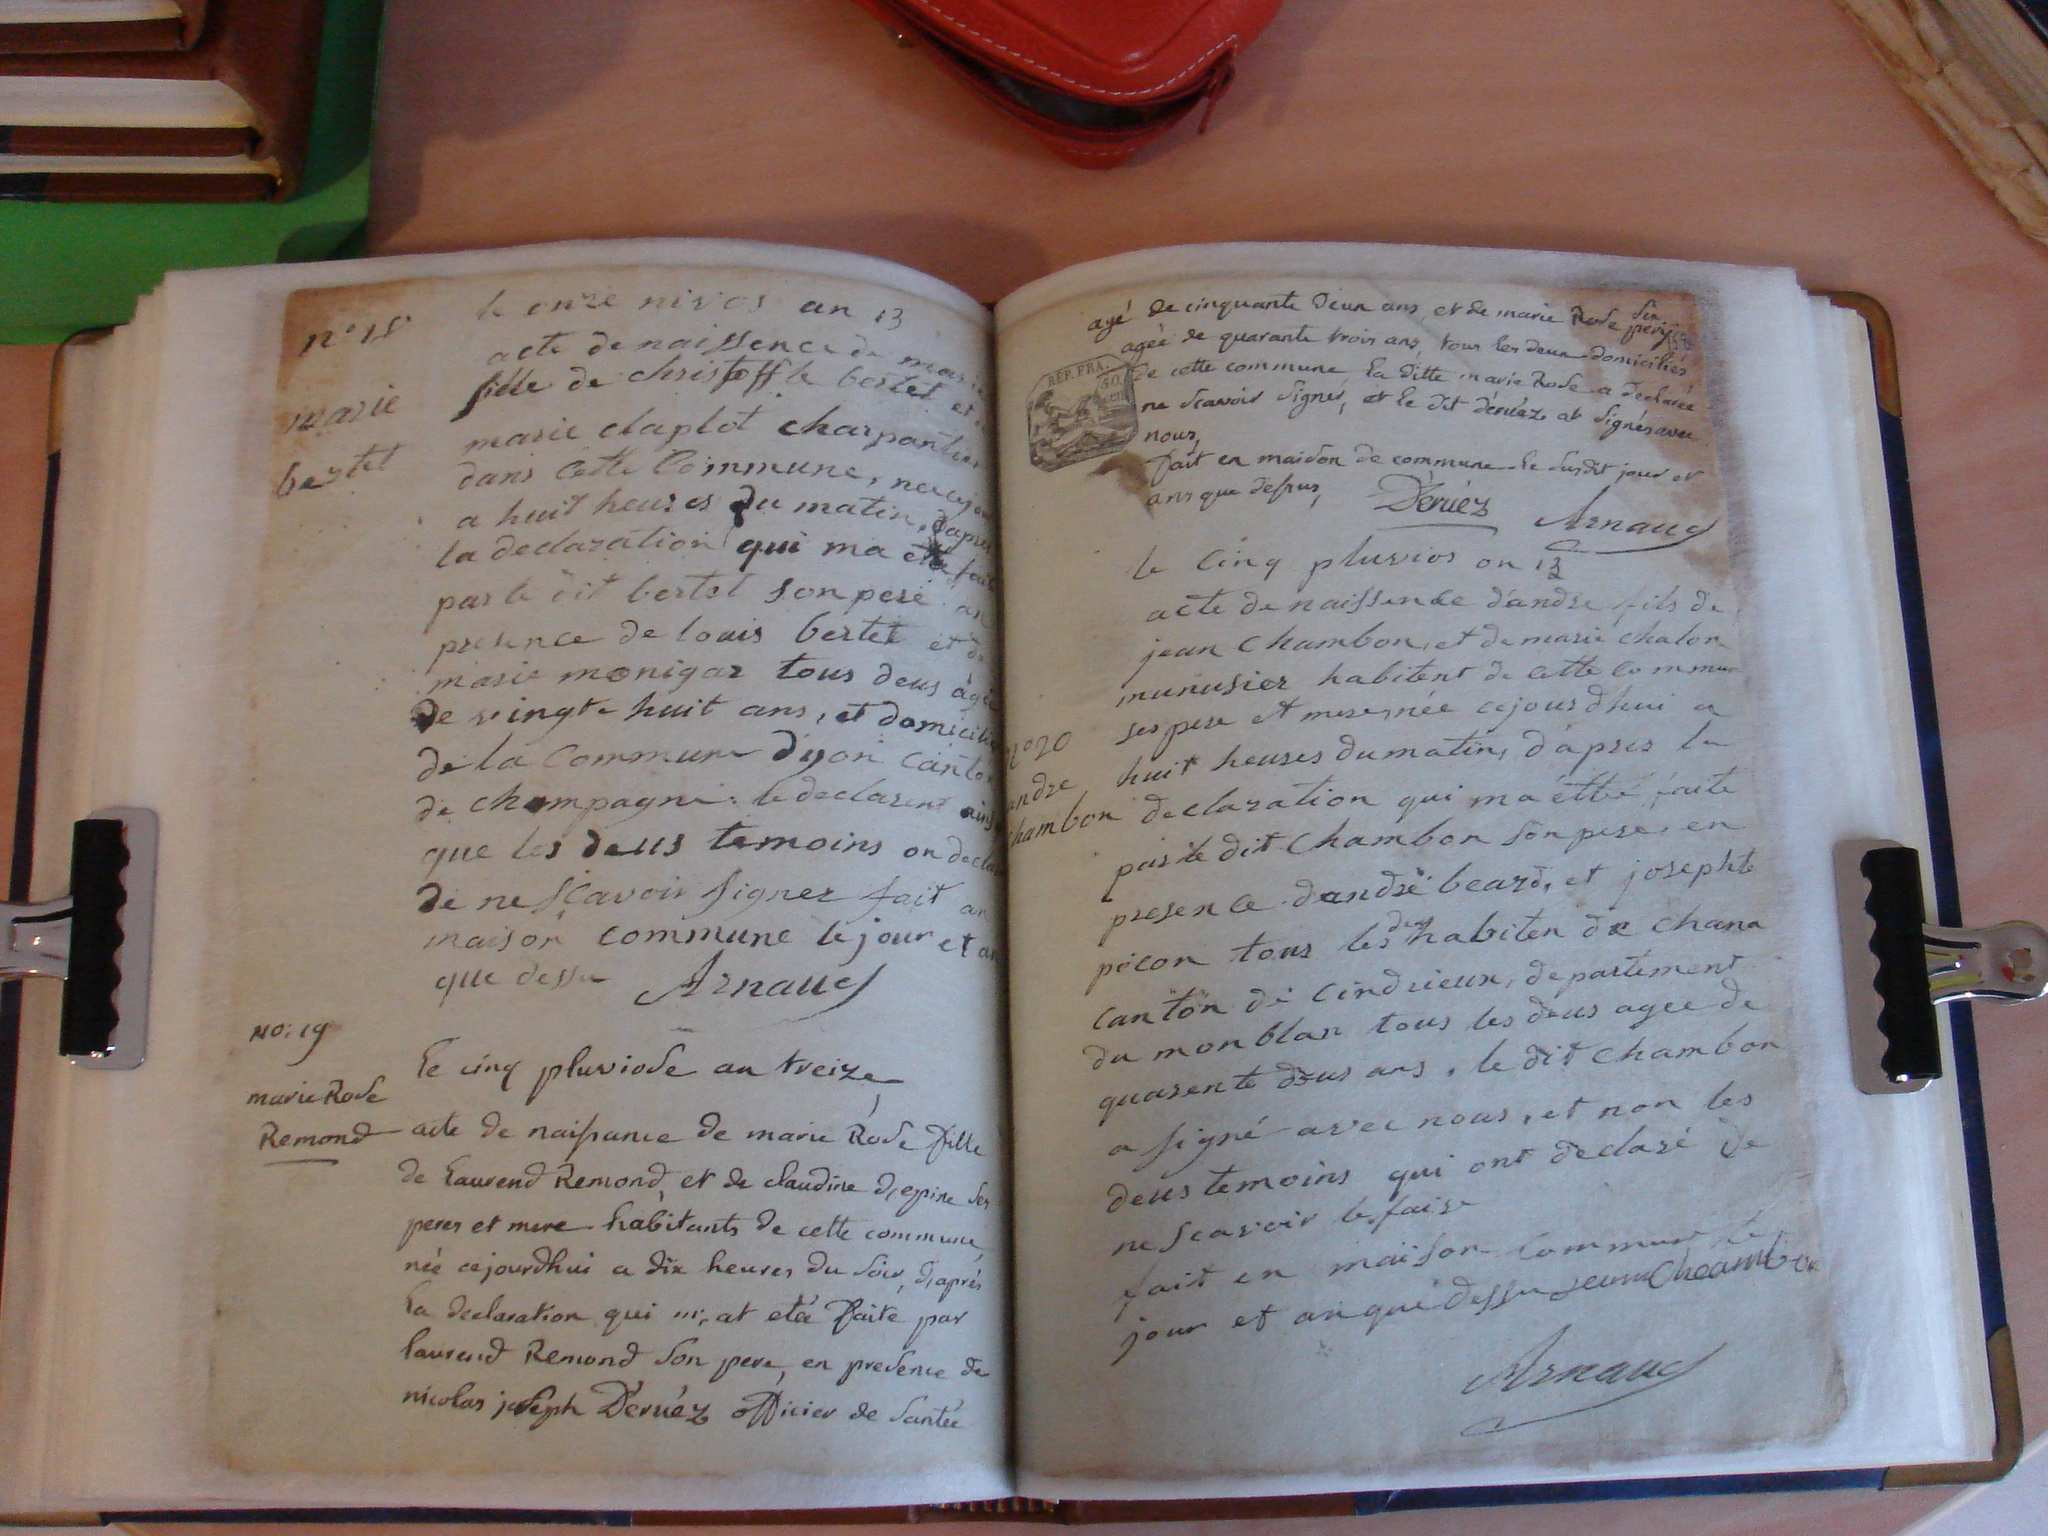 n° 18
marie
bertet
le onze nivos an 13
acte de naissence de marie
fille de christoffle bertet et
marie claplot charpantier
dans cette Commune, nee
a huit heures du matin, dapres
la declaration qui ma eté fait
par le dit bertet son pere an
presence de louis bertet et de
marie monigar tous deus agé
de vingte huit ans, et domicilié
de la Commune dyon canton
de champagne. le declarent ainsy
que les deus temoins on declar
de ne sçavoir signer fait an
maison commune le jour et an
que dessu Arnaud
No: 19
marie Rose
Remond
le cinq pluviose an treize,
acte de naissance de marie Rose fille
de Laurend Remond, et de claudine d,epine ses
peres et mere habitants de cette commune,
née cejourdhui a dix heures du soir, d,aprés
la declaration qui m,at etée faite par
laurend Remond son pere, en presence de
nicolas joseph Deruéz officier de santée
agé de cinquante deux ans, et de marie Rose
agée de quarante trois ans, tous les deux domiciliés
REP. FRA.
50.
cen
de cette commune la ditte marie Rose a declarée
ne scavoir signer, et le dit déruéz at signés avec
nous,
fait en maison de commune le susdit jour et
ans que dessus, Déruéz Arnaud
le Cinq pluvios an 13
acte de naissence d'andre fils de
jean Chambon, et de marie chalon
munusier habitent de cette Commun
ses pere et mere, née cejourdhui a
n° 20
andre
chambon
huit heures du matin, dapres la
declaration qui ma étté faite
par le dit Chambon son pere, en
presence dandré beard, et josephte
pècon tous les deus habiten de Chana
canton de Cindrieux, departement
du monblan tous les deus agee de
quarente deus ans, le dit Chambon
a signé avec nous, et non les
deus temoins qui ont declaré de
ne scavoir le faire
fait en maison Commune le
jour et an que dessu jean Cheambon
Arnaud